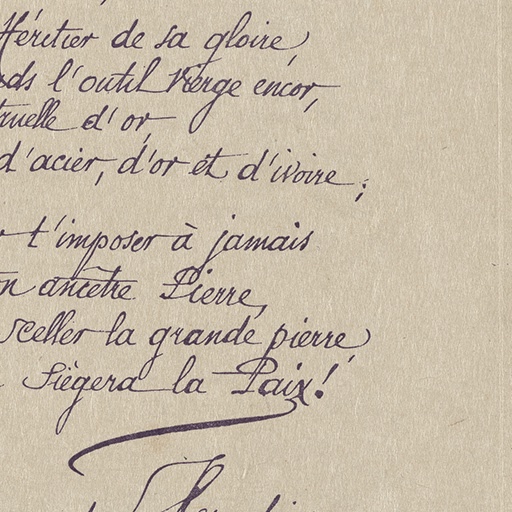 Héritier de sa gloire,
l'outil Vierge encor,
truelle d'or,
d'acier, d'or et d'ivoire;
t'imposer à jamais
ancêtre Pierre,
sceller la grande pierre,
Siègera la Paix!